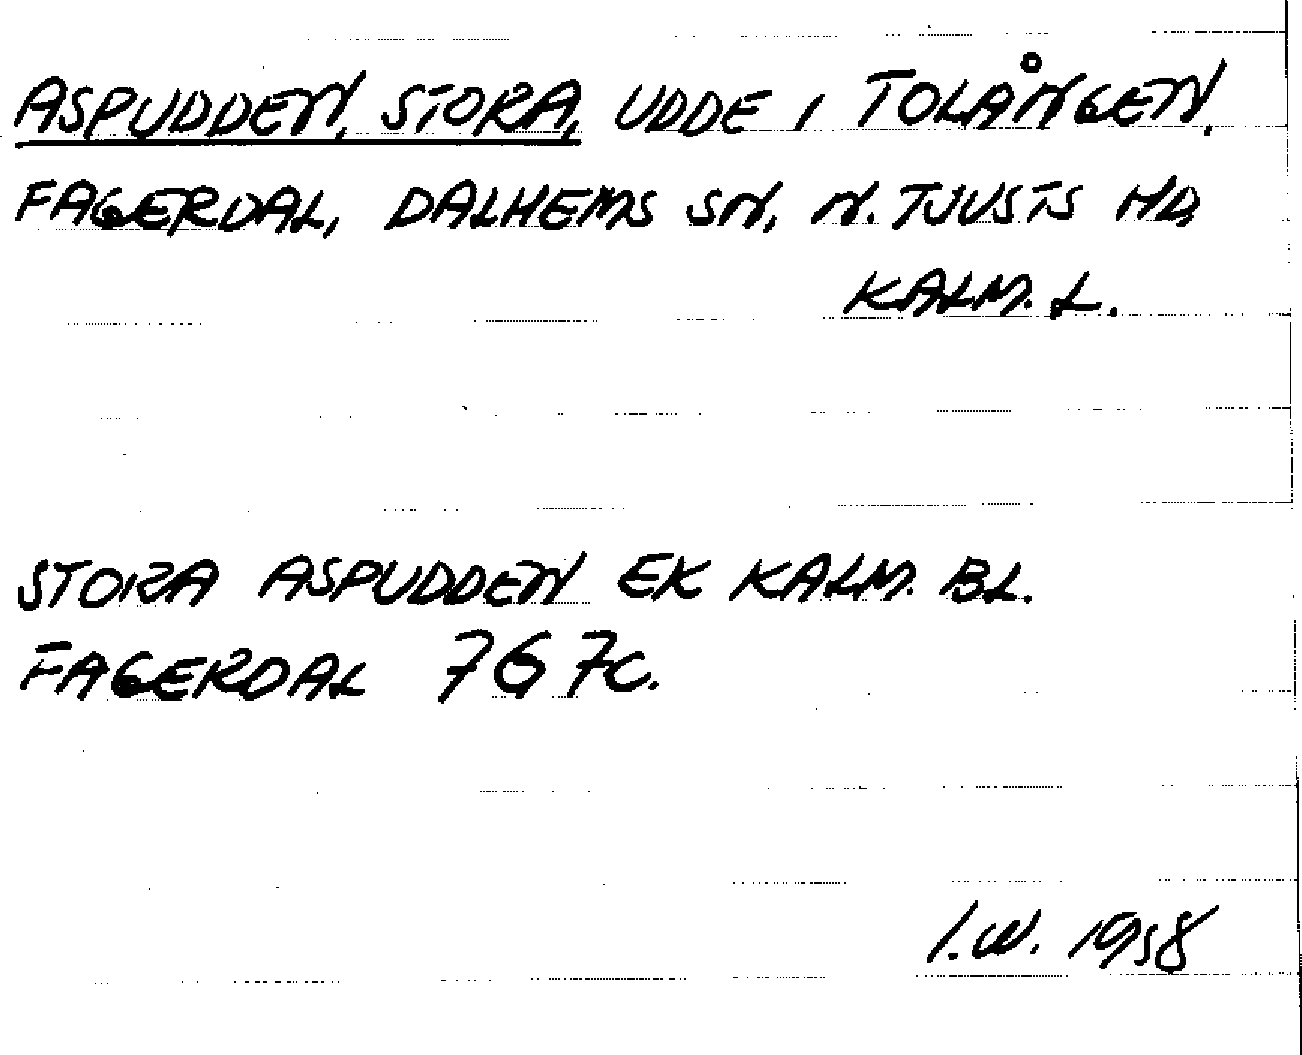 ASPUDDEN, STORA, UDDE I TOLÅNGEN,
FAGERDAL, DALHEMS SN, N. TJUSTS HD,
KALM. L.
STORA ASPUDDEN EK KALM. BL.
FAGERDAL 7G 7C.
I.W. 1958